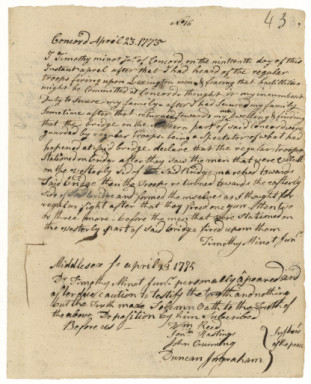 No 16
43
Concord April 23. 1775
I Timothy minot Junr. of Concord on the nineteenth day of this
Instant april after that I had heard of the regular
troops firing upon Lexington men & fearing that hostilities
might be Committed at Concord thought it my incumbent
Duty to Secure my family: after I had Secured my family
Sometime after that returning towards my Dwelling & finding
that the bridge on the northern part of said Concord was
guarded by regular troops being a Spectator of what had
hapened at said bridge. declare that the regular troops
Stationed on bridge after they saw the men that were Collected
on the westerly side of said bridge marched towards
said bridge then the troops returned towards the easterly
side of bridge and formed themselves as I thought for
regular fight after that they fired one gun then two
or three more before the men that were Stationed on
the westerly part of said bridge fired upon them
Timothy Minot Junr.
Middlesex ss april 23 1775
Dr Timothy Minot Junr. personally apeared and
after due caution to testify the truth and nothing
but the truth made Solemn oath to the truth of
the above Deposition by him Subscribed
Before us
Wm Reed
Jona. Hastings
John Cuming
Duncan Ingraham
Justices
of the peace